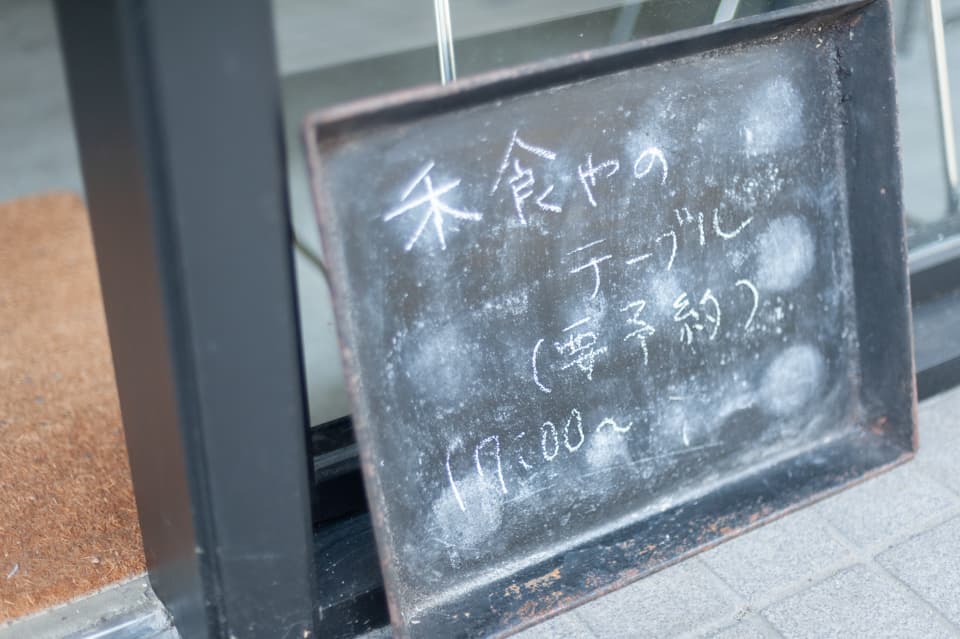 禾食やの
テーブル
(要予約)
17:00〜